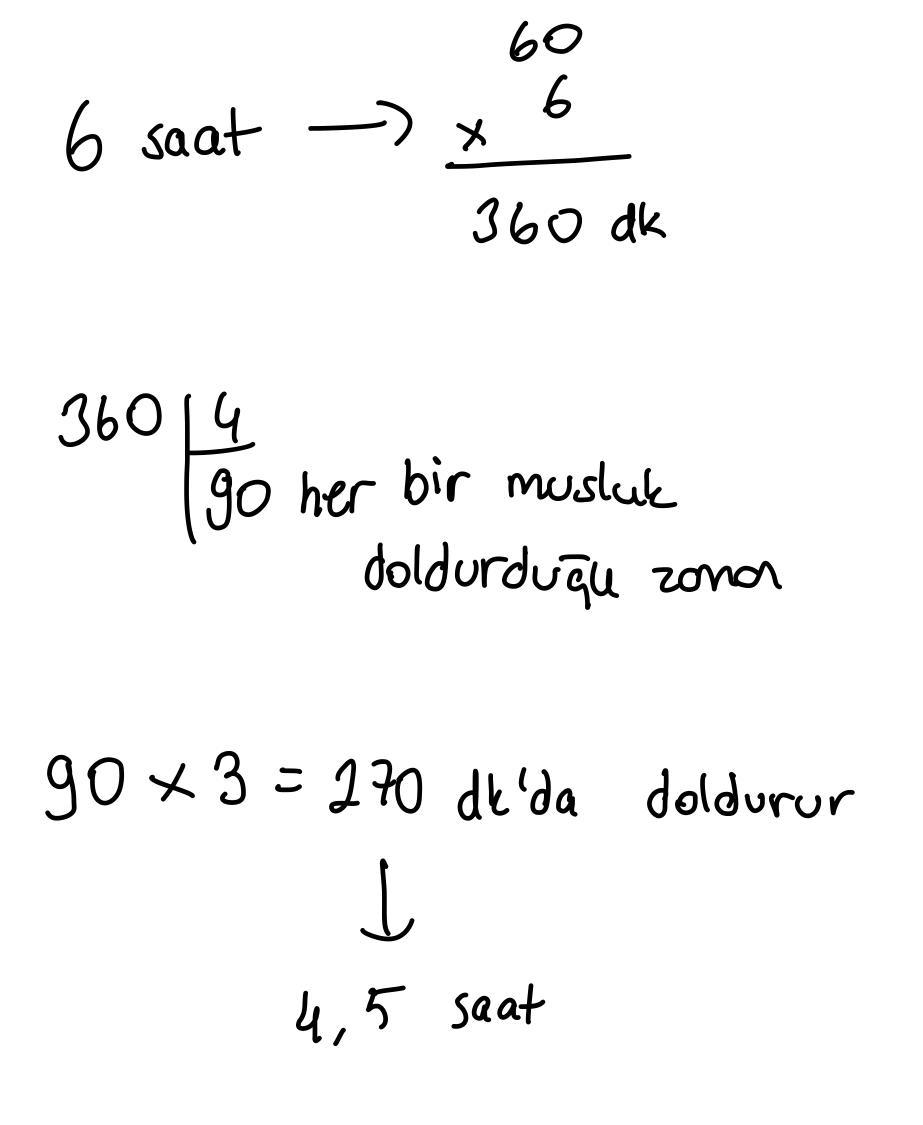 60
6 saat → x 6
360 dk
360 | 4
90 her bir musluk
doldurduğu zaman
90 x 3 = 270 dk'da doldurur
↓
4,5 saat